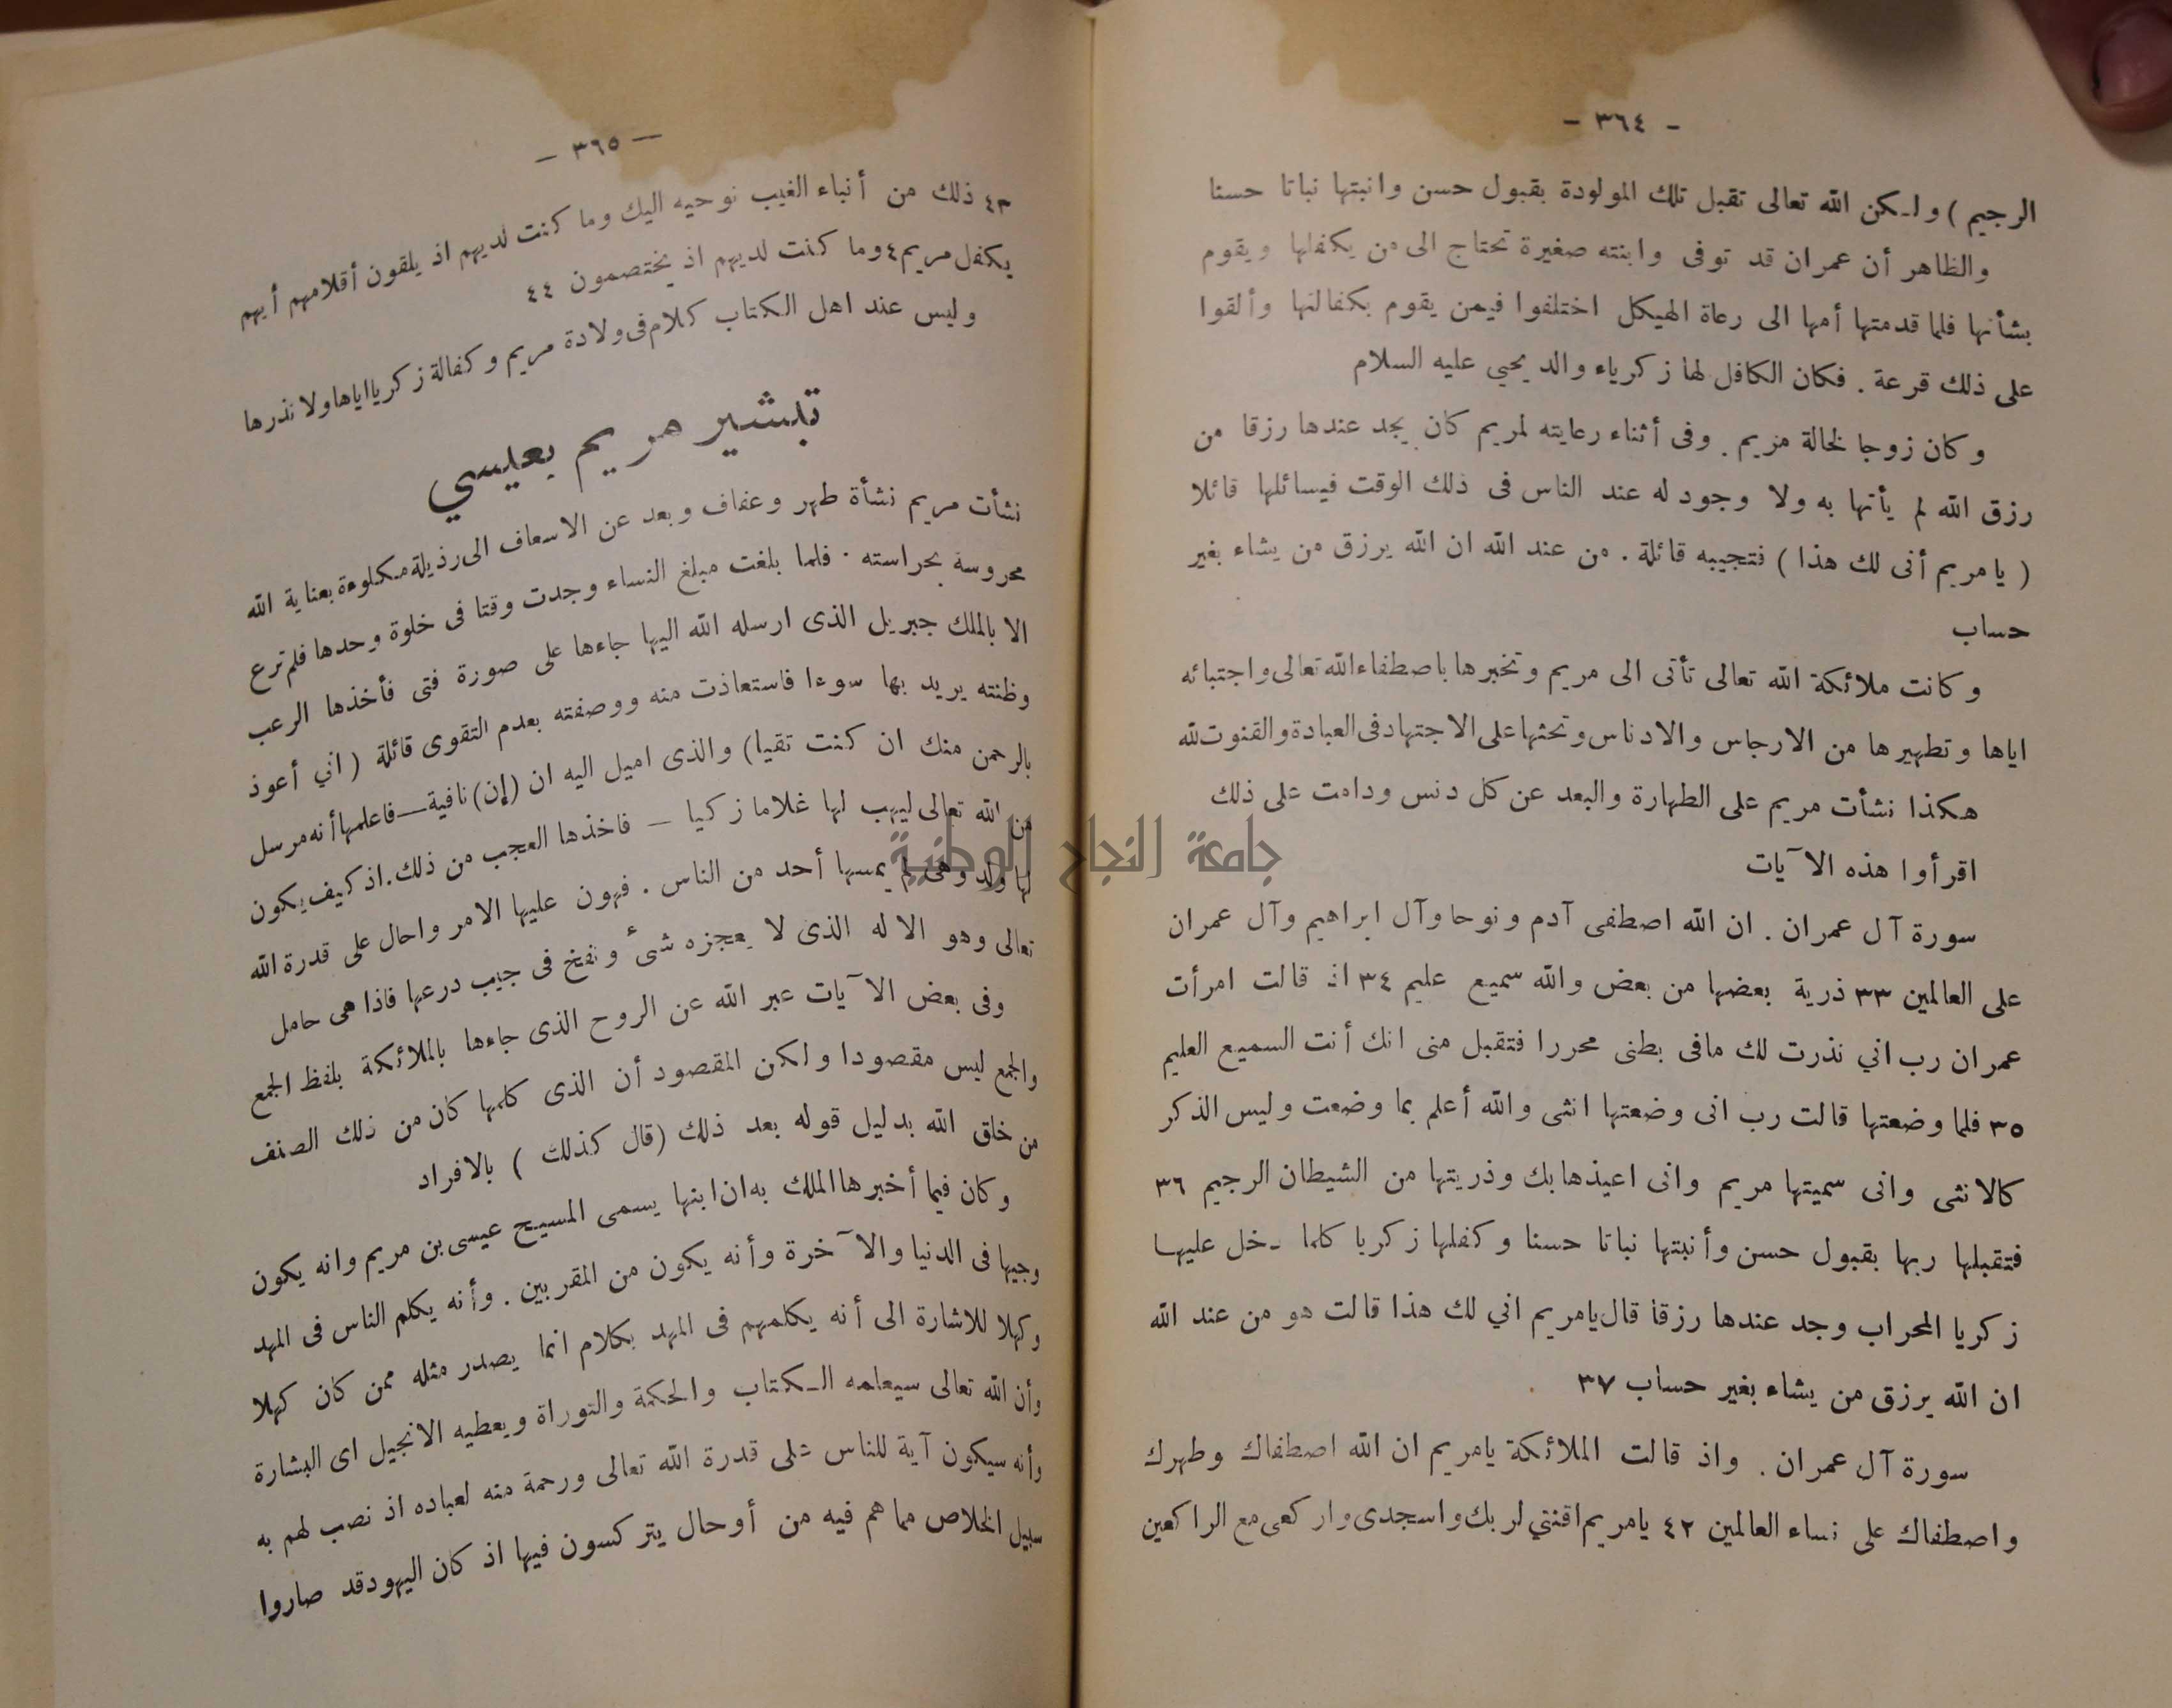 - ٣٦٤ -
الرجيم ) ولـكن الله تعالى تقبل تلك المولودة بقبول حسن وانبتها نباتا حسنا
والظاهر أن عمران قد توفى وابنته صغيرة تحتاج الى من يكفلها ويقوم
بشأنها فلما قدمتها أمها الى رعاة الهيكل اختلفوا فيمن يقوم بكفالتها وألقوا
على ذلك قرعة . فكان الكافل لها زكرياء والد يحيى عليه السلام
وكان زوجا لخالة مريم . وفى أثناء رعايته لمريم كان يجد عندها رزقا من
رزق الله لم يأتها به ولا وجود له عند الناس فى ذلك الوقت فيسائلها قائلا
( يا مريم أنى لك هذا ) فتجيبه قائلة . من عند الله ان الله يرزق من يشاء بغير
حساب
وكانت ملائكة الله تعالى تأتى الى مريم وتخبرها باصطفاء الله تعالى واجتبائه
اياها وتطهيرها من الارجاس والادناس وتحثها على الاجتهاد فى العبادة والقنوت لله
هكذا نشأت مريم على الطهارة والبعد عن كل دنس ودامت على ذلك
اقرأوا هذه الآيات
سورة آل عمران . ان الله اصطفى آدم ونوحا وآل ابراهيم وآل عمران
على العالمين ٣٣ ذرية بعضها من بعض والله سميع عليم ٣٤ اذ قالت امرأت
عمران رب اني نذرت لك مافى بطنى محررا فتقبل منى انك أنت السميع العليم
٣٥ فلما وضعتها قالت رب انى وضعتها انثى والله أعلم بما وضعت وليس الذكر
كالانثى وانى سميتها مريم وانى اعيذها بك وذريتها من الشيطان الرجيم ٣٦
فتقبلها ربها بقبول حسن وأنبتها نباتا حسنا وكفلها زكريا كلما دخل عليها
زكريا المحراب وجد عندها رزقا قال يامريم اني لك هذا قالت هو من عند الله
ان الله يرزق من يشاء بغير حساب ٣٧
سورة آل عمران . واذ قالت الملائكة يامريم ان الله اصطفاك وطهرك
واصطفاك على نساء العالمين ٤٢ يامريم اقنتي لربك واسجدى واركعى مع الراكعين
— ٣٦٥ —
٤٣ ذلك من أنباء الغيب نوحيه اليك وما كنت لديهم اذ يلقون أقلامهم أيهم
يكفل مريم ٤ وما كنت لديهم اذ يختصمون ٤٤
وليس عند اهل الكتاب كلام فى ولادة مريم وكفالة زكريا اياها ولا نذرها
تبشير مريم بعيسي
نشأت مريم نشأة طهر وعفاف وبعد عن الاسعاف الى رذيلة مكلوءة بعناية الله
محروسة بحراسته . فلما بلغت مبلغ النساء وجدت وقتا فى خلوة وحدها فلم ترع
الا بالملك جبريل الذى ارسله الله اليها جاءها على صورة فتى فأخذها الرعب
وظنته يريد بها سوءا فاستعاذت منه ووصفته بعدم التقوى قائلة ( اني أعوذ
بالرحمن منك ان كنت تقيا) والذى اميل اليه ان (إن) نافية — فاعلمها أنه مرسل
من الله تعالى ليهب لها غلاما زكيا — فاخذها العجب من ذلك . اذ كيف يكون
لها ولد وهى لم يمسها أحد من الناس . فهون عليها الامر واحال على قدرة الله
تعالى وهو الاله الذى لا يعجزه شىء ونفخ فى جيب درعها فاذا هى حامل
وفى بعض الآيات عبر الله عن الروح الذى جاءها بالملائكة بلفظ الجمع
والجمع ليس مقصودا ولكن المقصود أن الذى كلمها كان من ذلك الصنف
من خلق الله بدليل قوله بعد ذلك (قال كذلك ) بالافراد
وكان فيما أخبرها الملك به ان ابنها يسمى المسيح عيسى بن مريم وانه يكون
وجيها فى الدنيا والآخرة وأنه يكون من المقربين . وأنه يكلم الناس فى المهد
وكهلا للاشارة الى أنه يكلمهم فى المهد بكلام انما يصدر مثله ممن كان كهلا
وأن الله تعالى سيعلمه الـكتاب والحكمة والتوراة ويعطيه الانجيل اى البشارة
وأنه سيكون آية للناس على قدرة الله تعالى ورحمة منه لعباده اذ نصب لهم به
سبيل الخلاص مما هم فيه من أوحال يتركسون فيها اذ كان اليهود قد صاروا
جامعة النجاح الوطنية